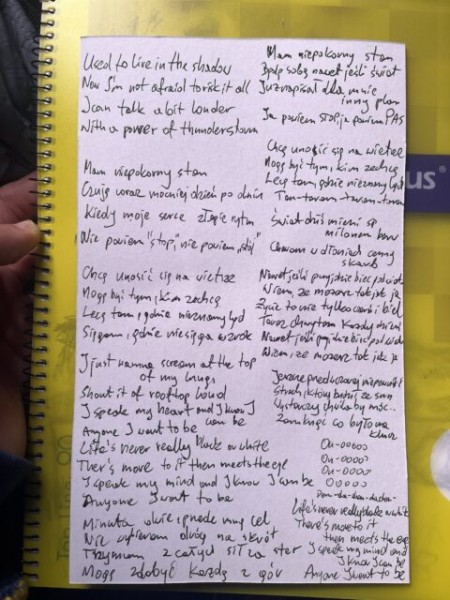 Used to live in the shadow
Now I'm not afraid to risk it all
I can talk a bit louder
With a power of thunderstorm
Mam niepokorny stan
Czuję coraz mocniej dzień po dniu
Kiedy moje serce złapie rytm
Nie powiem "stop," nie powiem "stój"
Chcę unosić się na wietrze
Mogę być tym, kim zechcę
Lecę tam, gdzie nieznany ląd
Sięgam, gdzie nie sięga wzrok
I just wanna scream at the top
of my lungs
Shout it of rooftop loud
I speak my heart and I know I
can be
Anyone I want to be
Life's never really black or white
Ther's more to it then meets the eye
I speak my mind and I know I can be
Anyone I want to be
Minuta, dwie, przede mną cel
Nie wybieram dróg na skrót
Trzymam z całych sił za ster
Mogę zdobyć każdą z gór
Mam niepokorny stan
Będę sobą nawet jeśli świat
Już napisał dla mnie
inny plan
Ja powiem STOP, ja powiem PAS
Chcę unosić się na wietrze
Mogę być tym, kim zechcę
Lecę tam, gdzie nieznany ląd
Tam-taram-taram-taram
Świat dziś mieni się
milionem barw
Chowam w dłoniach cenny
skarb
Nawet jeśli przyjdzie biec pod wiatr
Wiem, że możesz tak jak ja
Życie to nie tylko czerń i biel
Teraz chwytam każdy dzień
Nawet jeśli przyjdzie biec pod wiatr
Wiem, że możesz tak jak ja
Strach, który budzi ze snu
Wystarczy chwila by móc..
Zamknąć co było na
klucz
Ou-ooooo
Ou-oooo
Ou-oooo
Ooooo
Life's never really black or white
There's more to it
then meets the eye
I speak my mind and
I know I can be
Anyone I want to be
us®